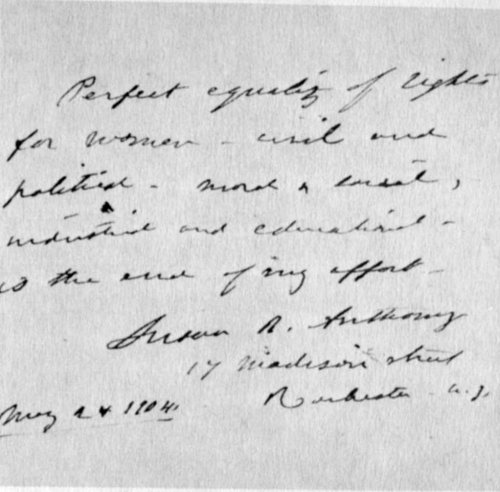 Perfect equality of rights
for women - civil and
political - moral & social,
industrial and educational -
is the end of my effort -
Susan B. Anthony
17 Madison street
Rochester N.Y.
May 24 1904.